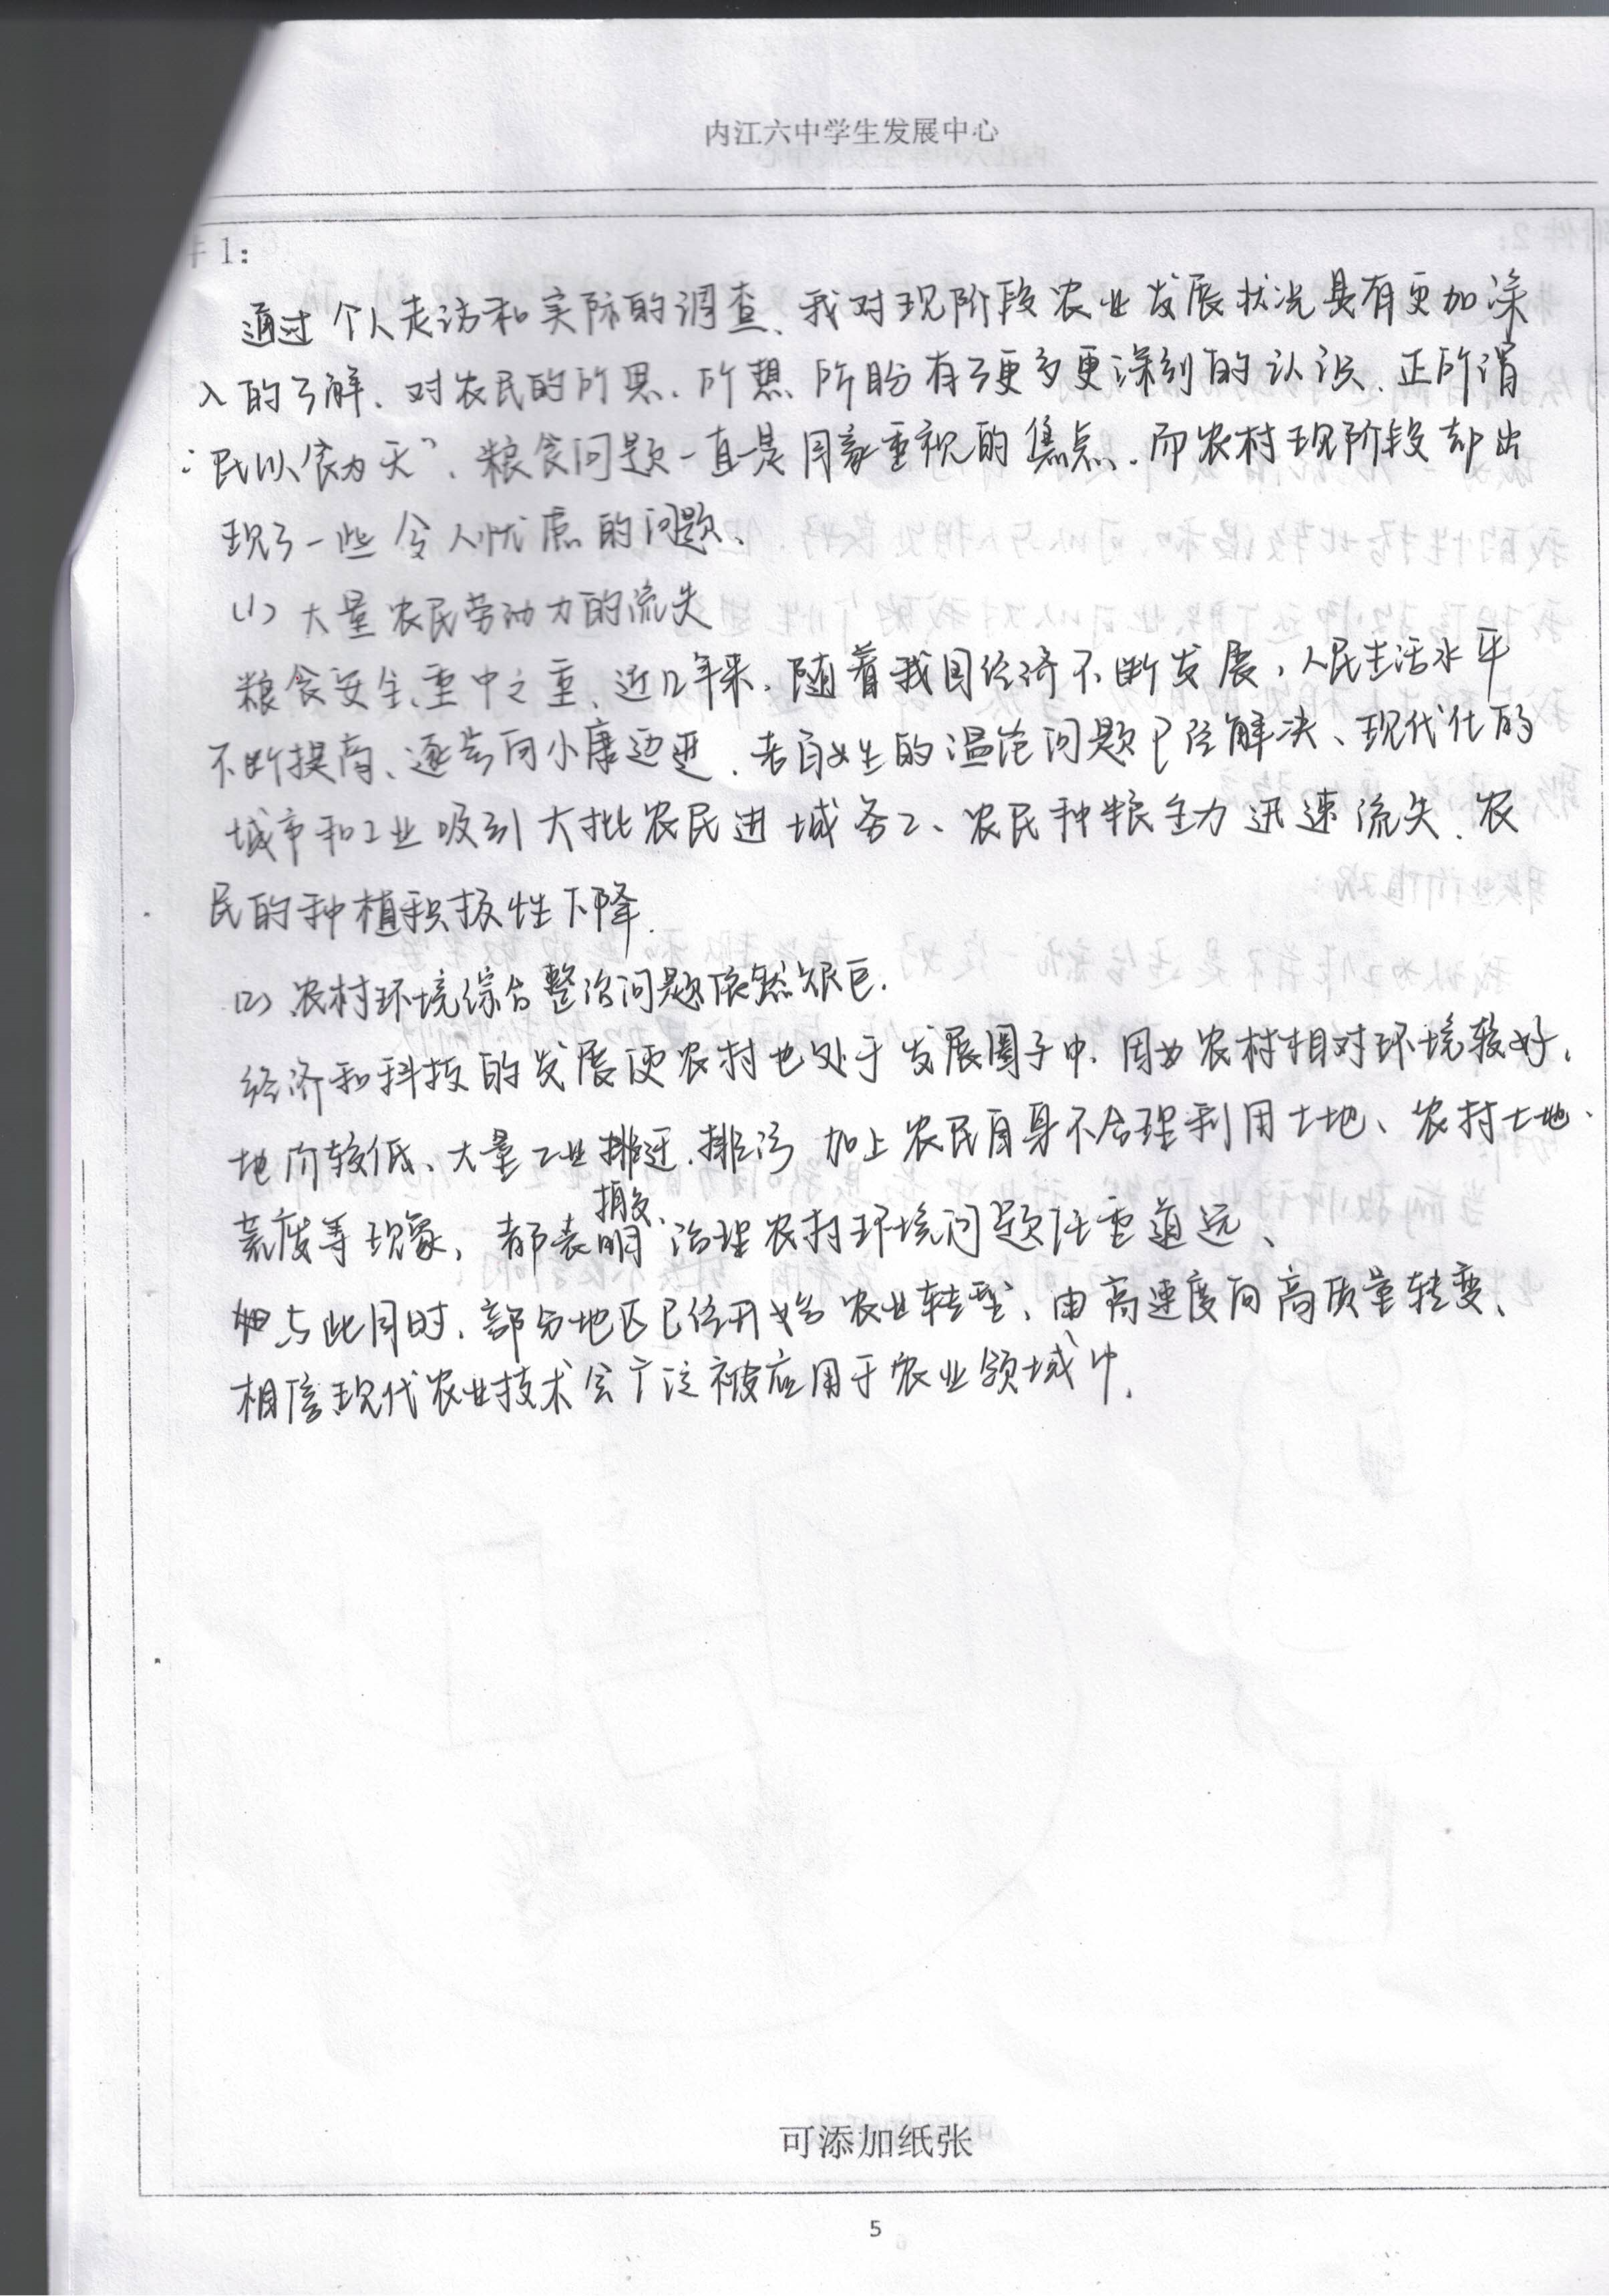 内江六中学生发展中心
件1:
通过个人走访和实际的调查、我对现阶段农业发展状况具有更加深
入的了解、对农民的所思、所想、所盼有了更多更深刻的认识、正所谓
“民以食为天”、粮食问题一直是国家重视的焦点、而农村现阶段却出
现了一些令人忧虑的问题、
(1) 大量农民劳动力的流失
粮食安全、重中之重、近几年来、随着我国经济不断发展，人民生活水平
不断提高、逐步向小康迈进、老百姓的温饱问题已经解决、现代化的
城市和工业吸引大批农民进城务工、农民种粮主力迅速流失、农
民的种植积极性下降.
(2) 农村环境综合整治问题依然艰巨.
经济和科技的发展使农村也处于发展圈子中、因为农村相对环境较好，
地价较低、大量工业搬迁、排污 加上农民自身不合理利用土地、农村土地
荒废等现象，都表明治理农村环境问题任重道远、
与此同时、部分地区已经开始农业转型、由高速度向高质量转变、
相信现代农业技术会广泛被应用于农业领域中.
可添加纸张
5